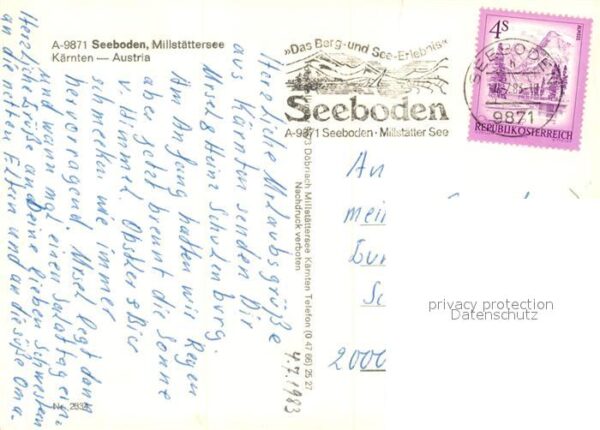 A-9871 Seeboden, Millstättersee
Kärnten — Austria
»Das Berg- und See-Erlebnis«
Seeboden
A-9871 Seeboden · Millstätter See
4S
REPUBLIK ÖSTERREICH
SEEBODEN
9871
Herzliche Urlaubsgrüße
aus Kärnten senden Dir
Ursel & Heinz Schulenburg.
Am Anfang hatten wir Regen
aber jetzt brennt die Sonne
v. Himmel. Obstler & Bier
schmecken wie immer
hervorragend. Ursel legt dann
und wann mal einen Salattag ein.
Herzliche Grüße an Deine lieben Schwestern
an die netten Eltern und an die süße Oma.
4.7.1983
Döbriach Millstättersee Kärnten Telefon (0 47 66) 25 27
Nachdruck verboten
An
2000
privacy protection
Datenschutz